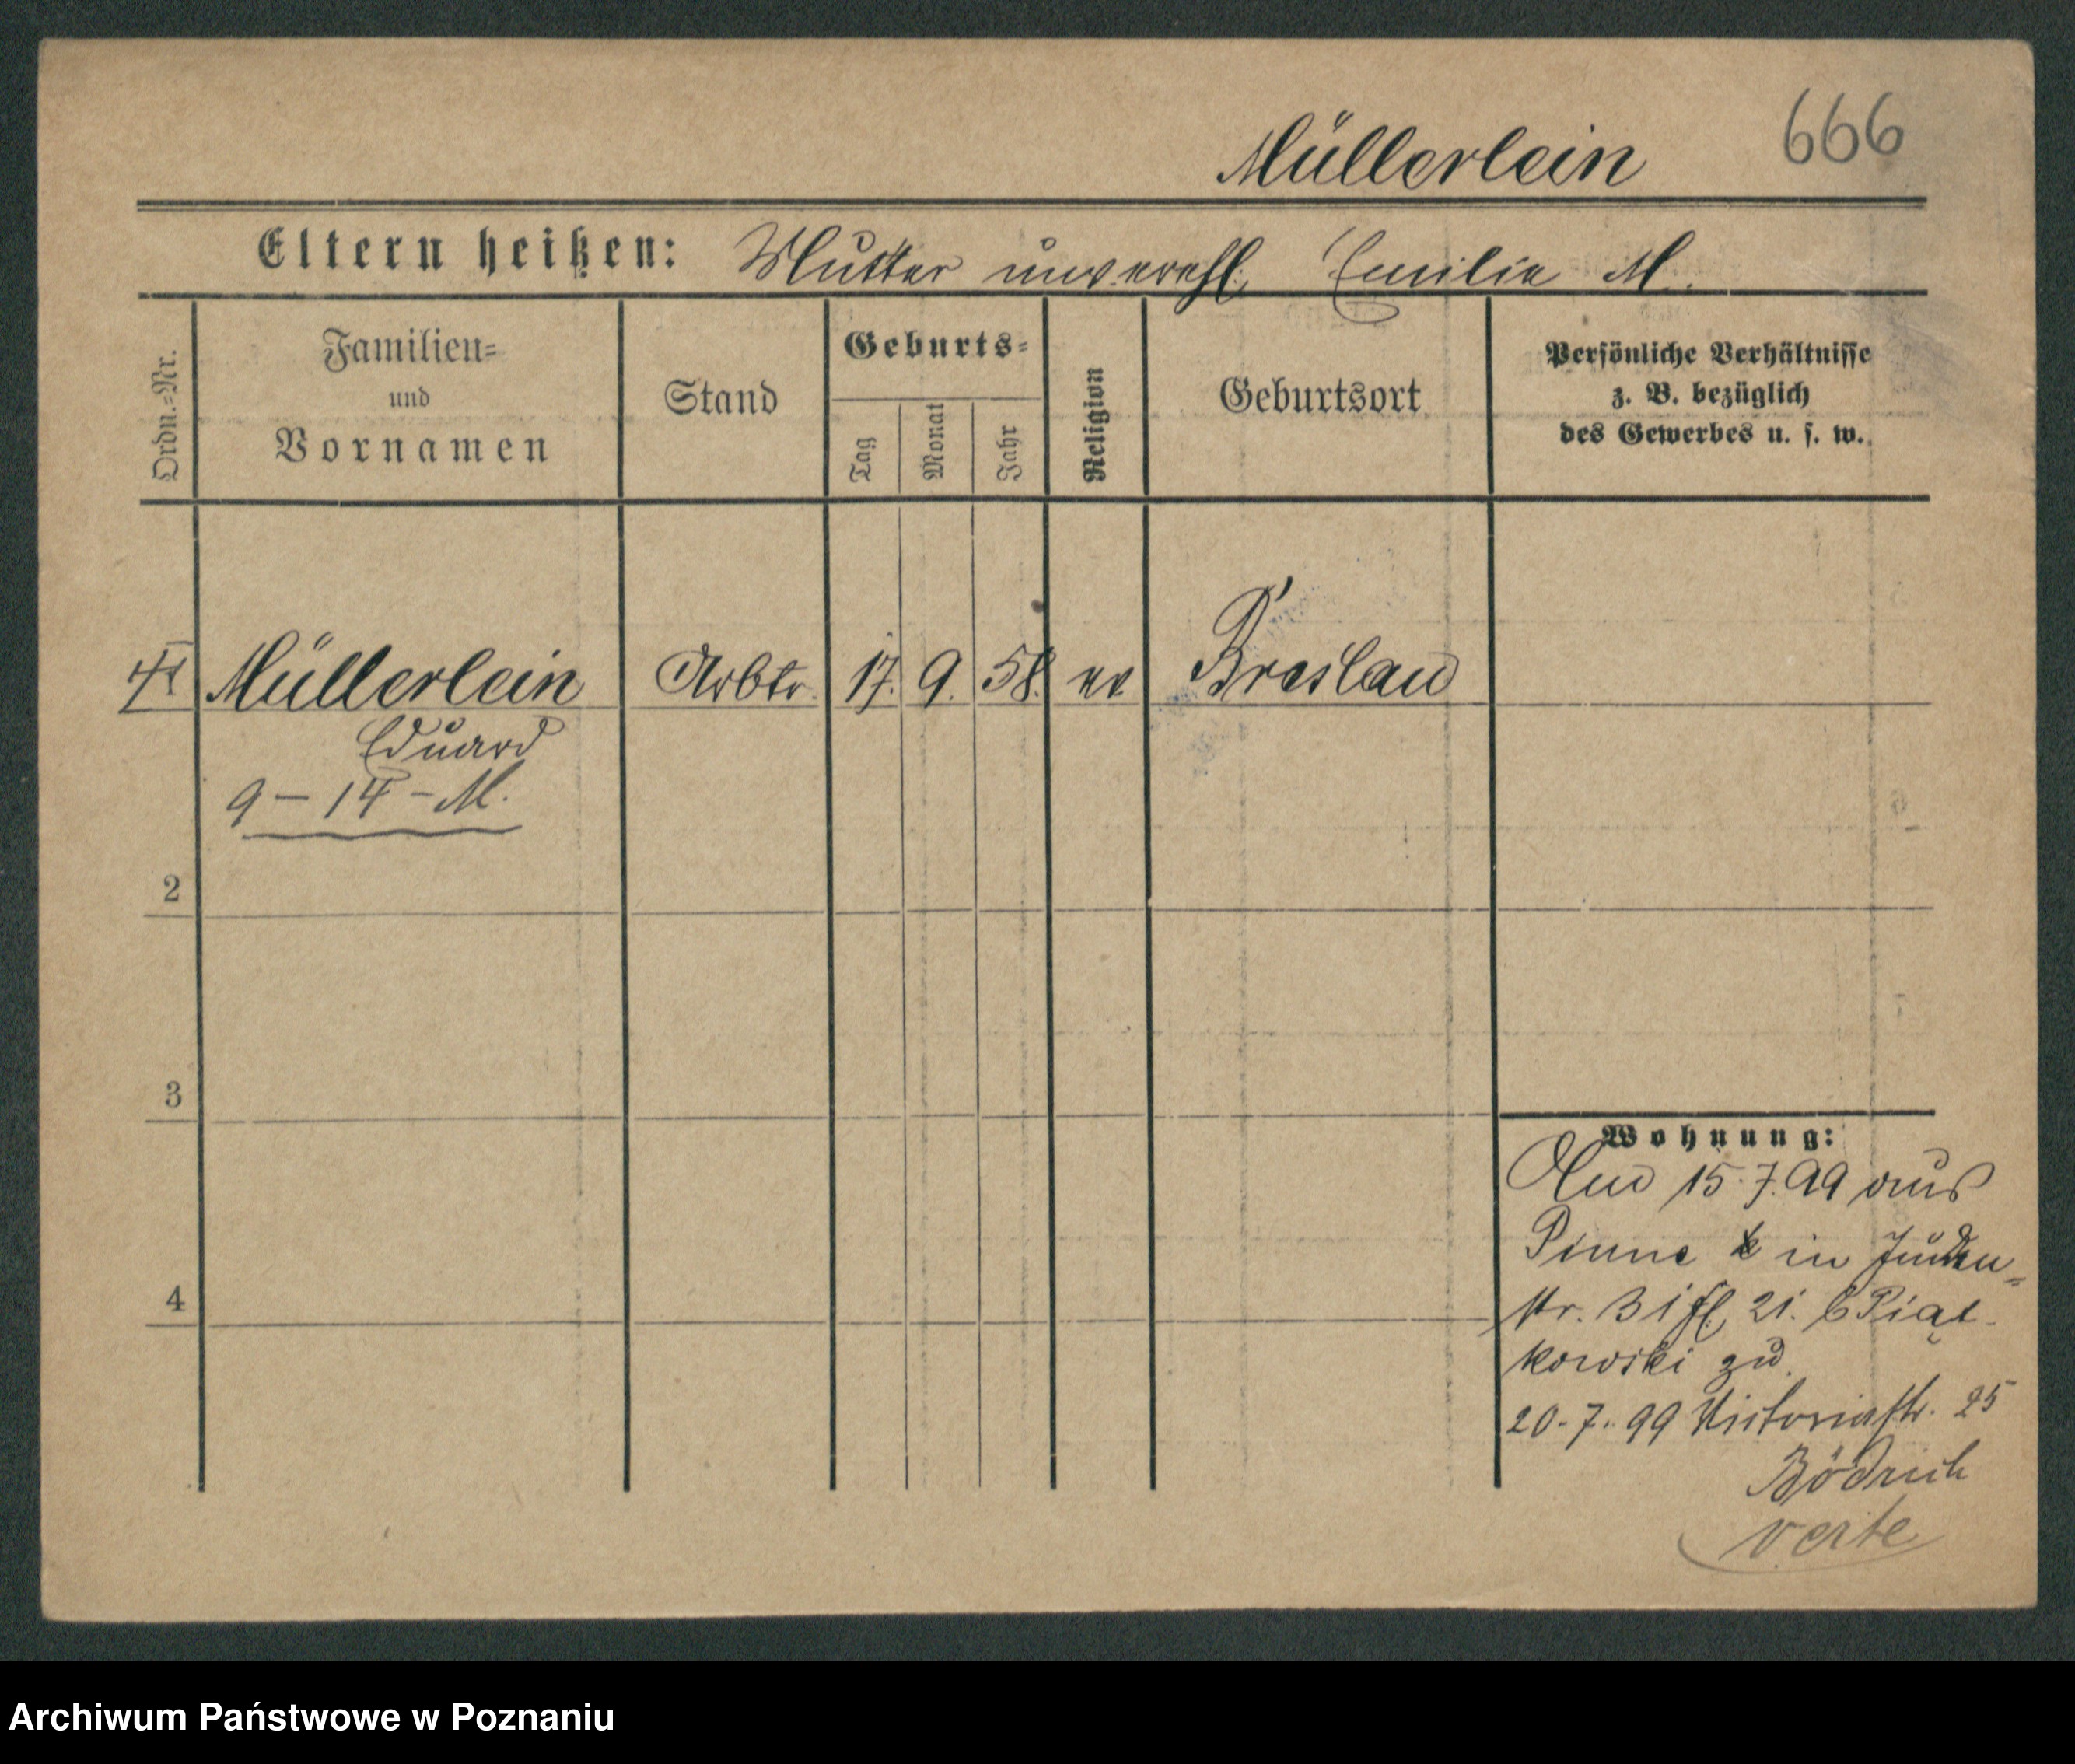 666
Müllerlein
Eltern heißen: Mutter unverehl. Emilie M.
Ordn.=Nr.
Familien=
und
Vornamen
Stand
Geburts=
Tag
Monat
Jahr
Religion
Geburtsort
Persönliche Verhältnisse
z. B. bezüglich
des Gewerbes u. s. w.
Müllerlein Arbtr. 17. 9. 58. ev Breslau
Eduard
9 – 14 – M.
2
3
4
Wohnung:
15.7.99 aus
Pinne in Juden=
str. 31 21. b Piąt-
kowski zu.
20.7.99 Victoriastr. 25
Bödrich
verte
Archiwum Państwowe w Poznaniu